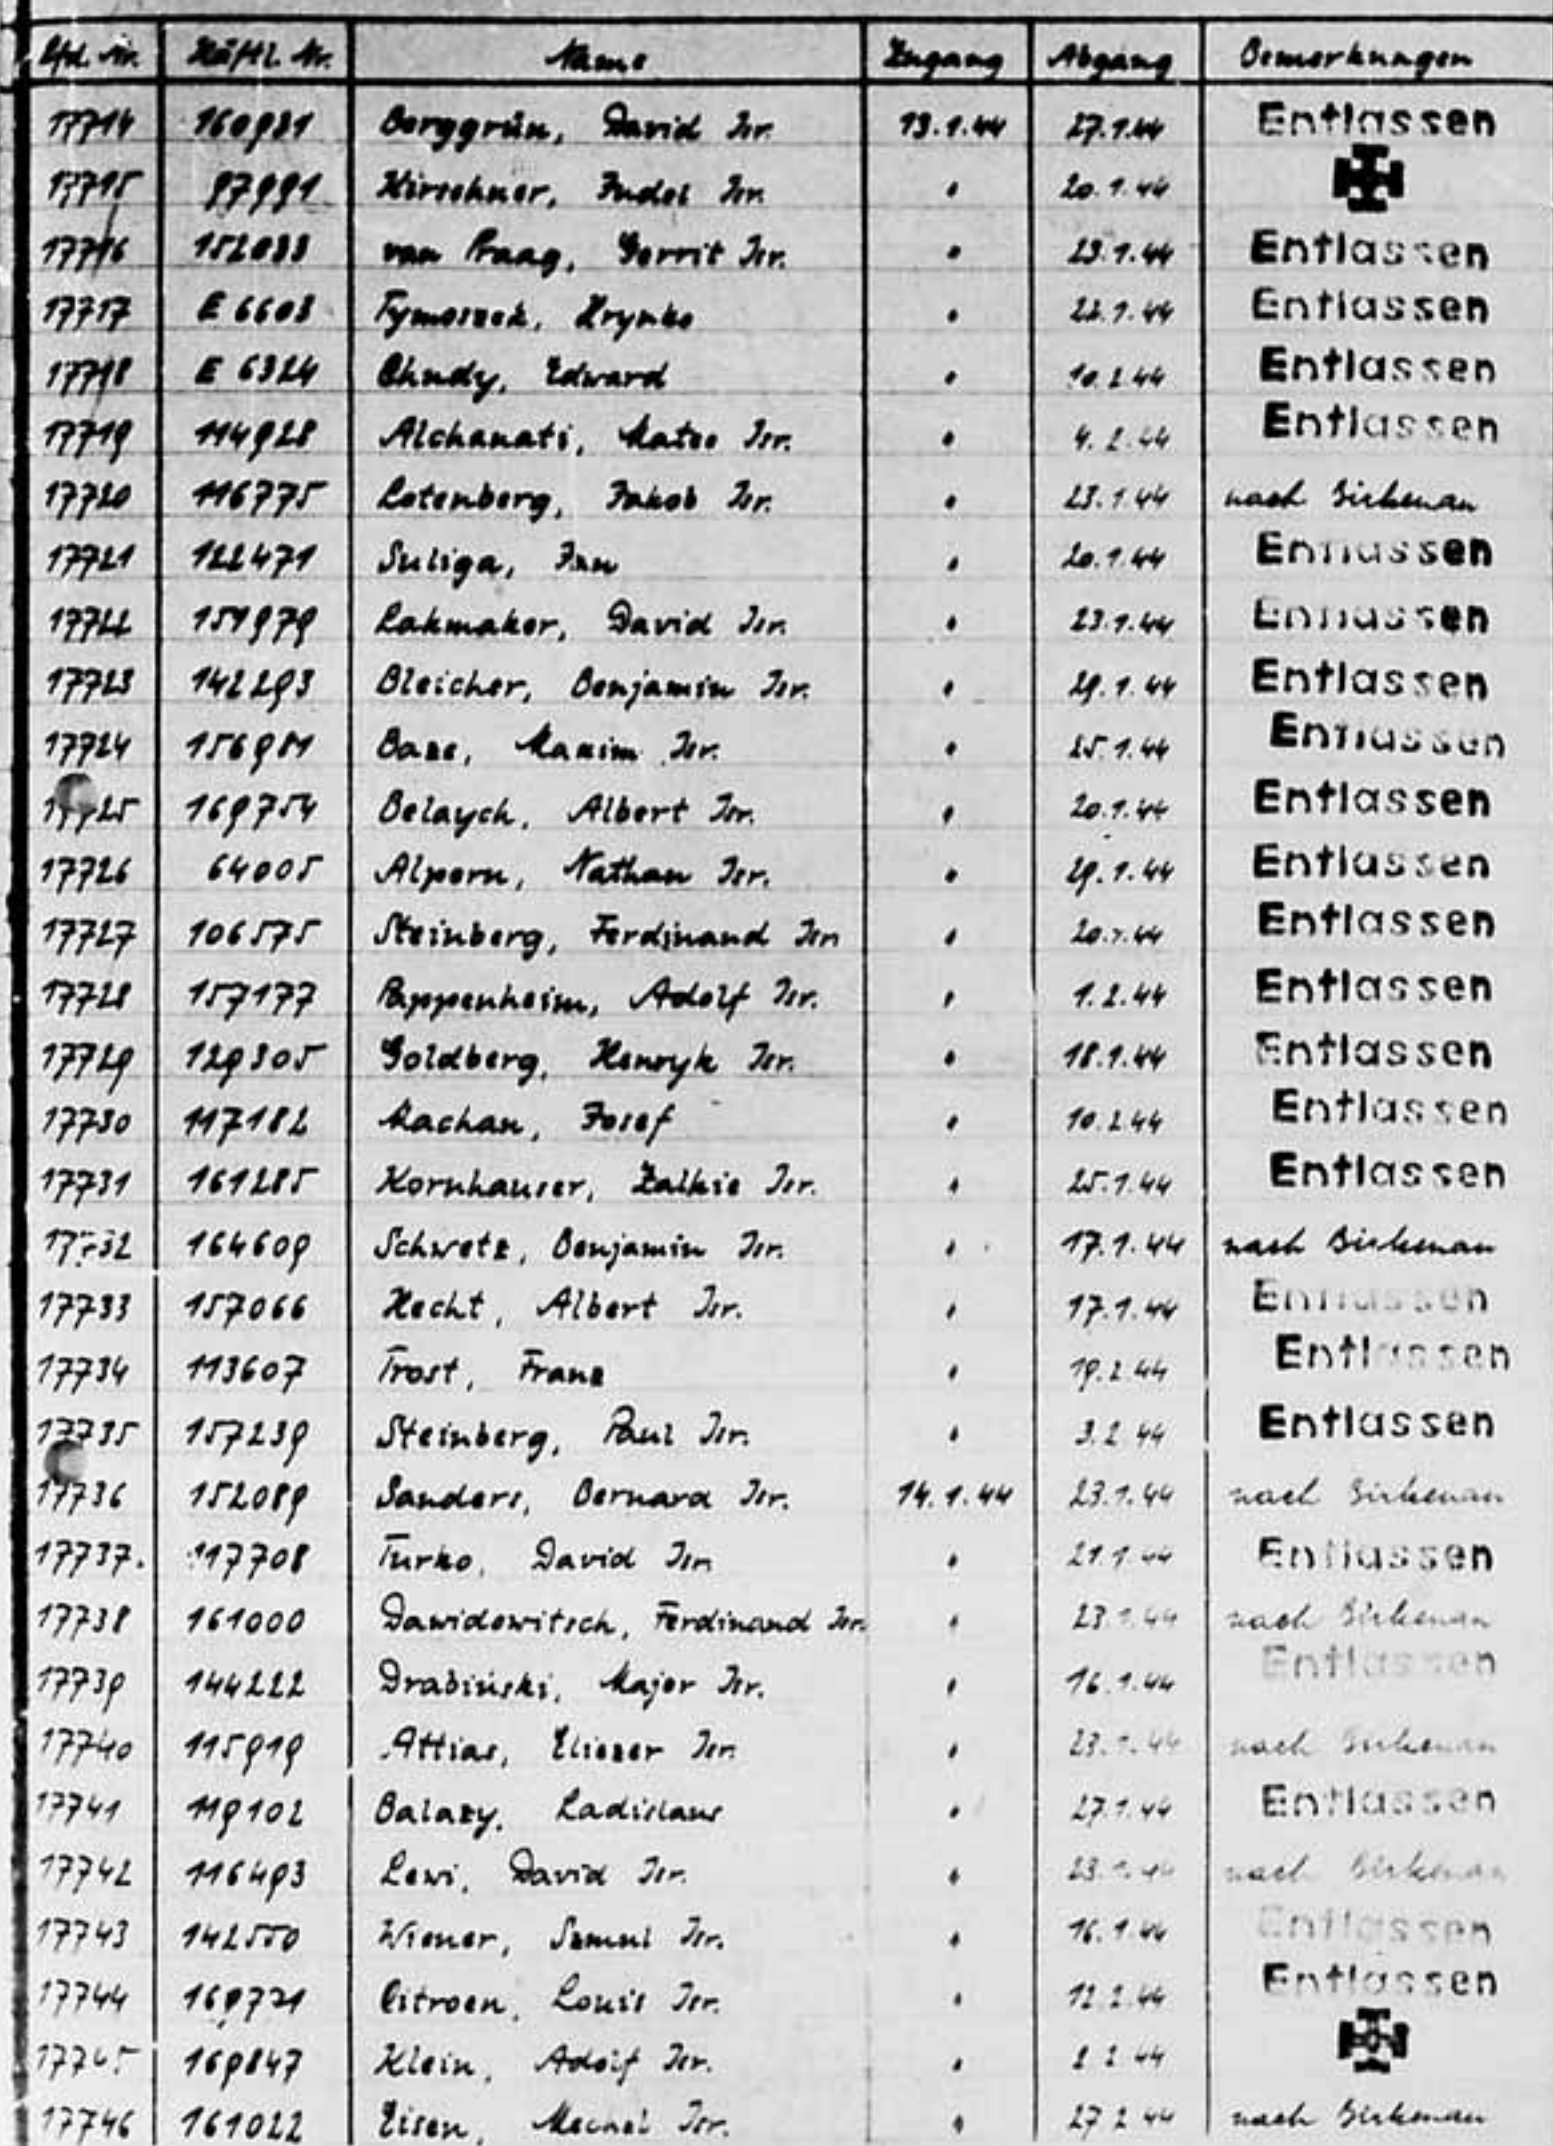 Lfd. Nr. Häftl. Nr. Name Zugang Abgang Bemerkungen
17714 160981 Berggrün, David Isr. 13.1.44 27.1.44 Entlassen
17715 97991 Hirschner, Judel Isr. " 20.1.44
17716 152033 van Praag, Gerrit Isr. " 23.1.44 Entlassen
17717 E 6603 Tymoszek, Hrynko " 22.1.44 Entlassen
17718 E 6324 Chudy, Edward " 10.2.44 Entlassen
17719 114928 Alchanati, Mateo Isr. " 4.2.44 Entlassen
17720 116775 Lotenberg, Jakob Isr. " 23.1.44 nach Birkenau
17721 122471 Suliga, Jan " 20.1.44 Entlassen
17722 151979 Lakmaker, David Isr. " 23.1.44 Entlassen
17723 142293 Bleicher, Benjamin Isr. " 29.1.44 Entlassen
17724 156981 Baze, Maxim Isr. " 25.1.44 Entlassen
17725 169754 Belaych, Albert Isr. " 20.1.44 Entlassen
17726 64005 Alpern, Nathan Isr. " 29.1.44 Entlassen
17727 106575 Steinberg, Ferdinand Isr. " 20.1.44 Entlassen
17728 157177 Pappenheim, Adolf Isr. " 1.2.44 Entlassen
17729 129305 Goldberg, Henryk Isr. " 18.1.44 Entlassen
17730 117182 Machan, Josef " 10.2.44 Entlassen
17731 161285 Kornhauser, Zalkie Isr. " 25.1.44 Entlassen
17732 164609 Schwetz, Benjamin Isr. " 17.1.44 nach Birkenau
17733 157066 Hecht, Albert Isr. " 17.1.44 Entlassen
17734 113607 Trost, Franz " 19.2.44 Entlassen
17735 157239 Steinberg, Paul Isr. " 3.2.44 Entlassen
17736 152089 Sanders, Bernard Isr. 14.1.44 23.1.44 nach Birkenau
17737. 117708 Turko, David Isr. " 21.1.44 Entlassen
17738 161000 Dawidowitsch, Ferdinand Isr. " 23.1.44 nach Birkenau
17739 144222 Drabiński, Major Isr. " 16.1.44 Entlassen
17740 115919 Attias, Eliezer Isr. " 23.1.44 nach Birkenau
17741 119102 Balazy, Ladislaus " 27.1.44 Entlassen
17742 116493 Lewi, David Isr. " 23.1.44 nach Birkenau
17743 142550 Wiener, Szmul Isr. " 16.1.44 Entlassen
17744 169721 Citroen, Louis Isr. " 12.2.44 Entlassen
17745 169847 Klein, Adolf Isr. " 2.2.44
17746 161022 Eisen, Isr. " 27.2.44 nach Birkenau